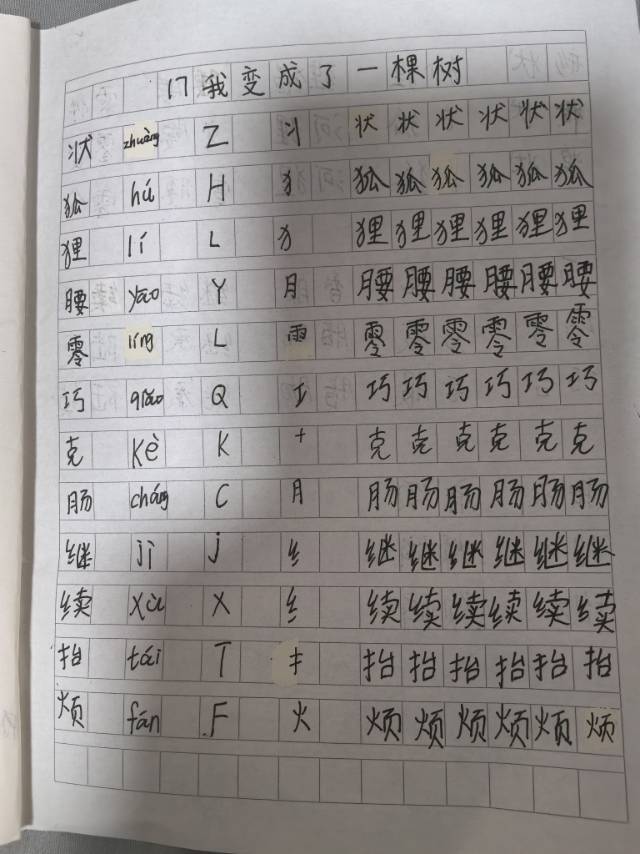 17 我变成了一棵树
状 zhuàng Z 丬 状 状 状 状 状 状
狐 hú H 犭 狐 狐 狐 狐 狐 狐
狸 lí L 犭 狸 狸 狸 狸 狸 狸
腰 yāo Y 月 腰 腰 腰 腰 腰 腰
零 líng L 雨 零 零 零 零 零 零
巧 qiǎo Q 工 巧 巧 巧 巧 巧 巧
克 kè K 十 克 克 克 克 克 克
肠 cháng C 月 肠 肠 肠 肠 肠 肠
继 jì j 纟 继 继 继 继 继 继
续 xù X 纟 续 续 续 续 续 续
抬 tái T 扌 抬 抬 抬 抬 抬 抬
烦 fán F 火 烦 烦 烦 烦 烦 烦